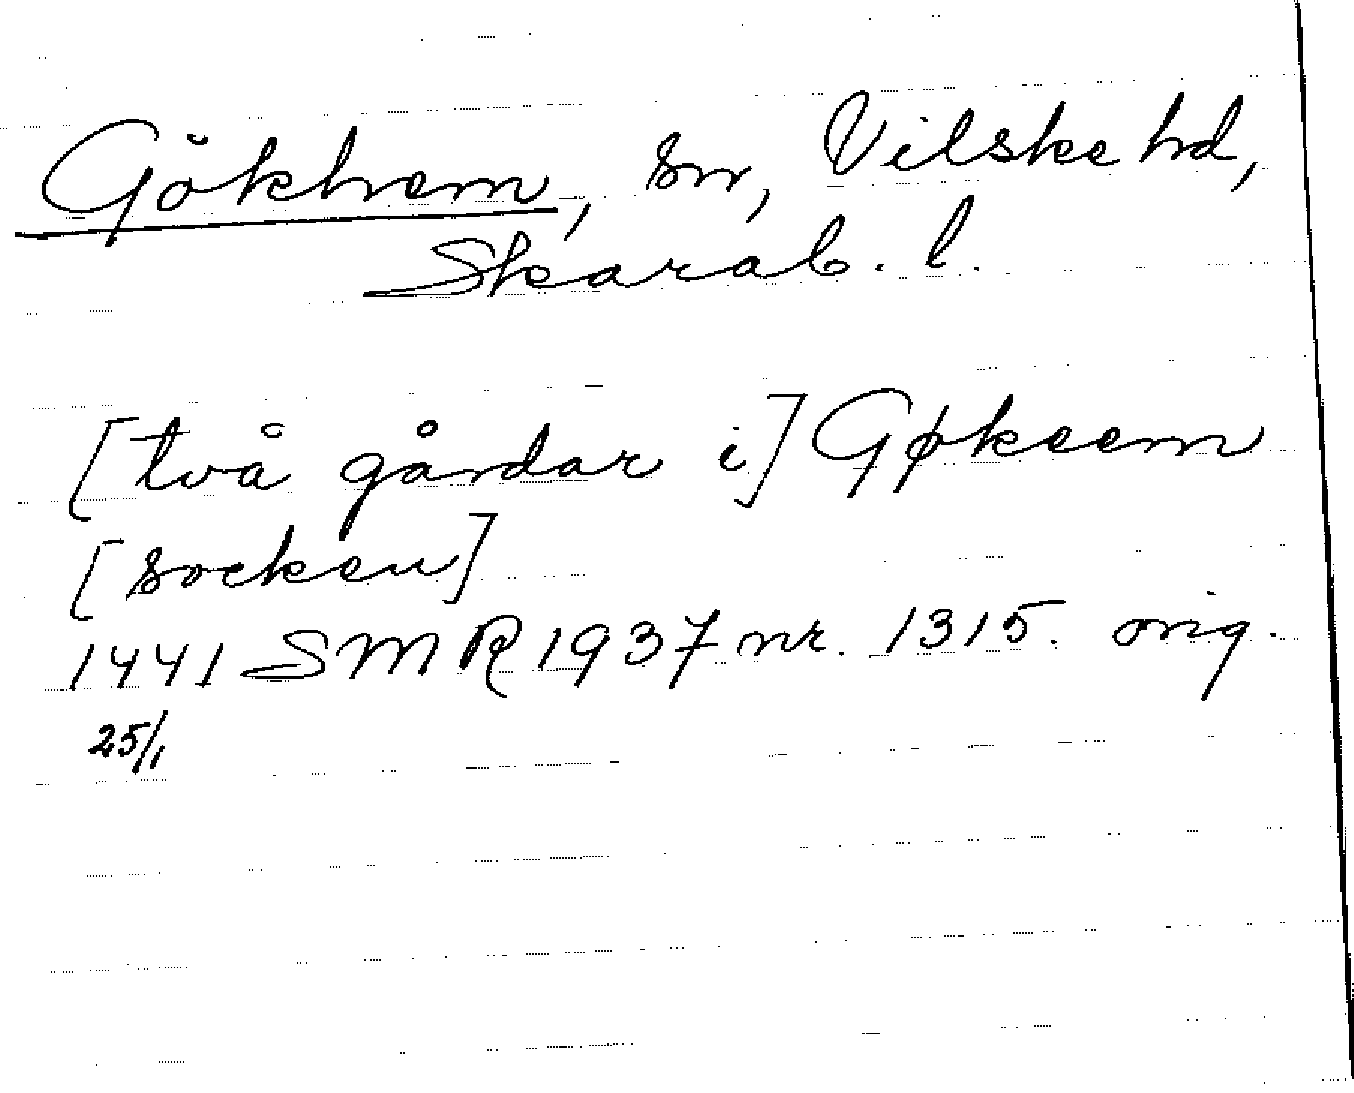 Gökhem, sn, Vilske hd,
Skarab. l.
[två gårdar i] Gøkeem
[socken]
1441 SMR 1937 nr. 1315. orig.
25/1